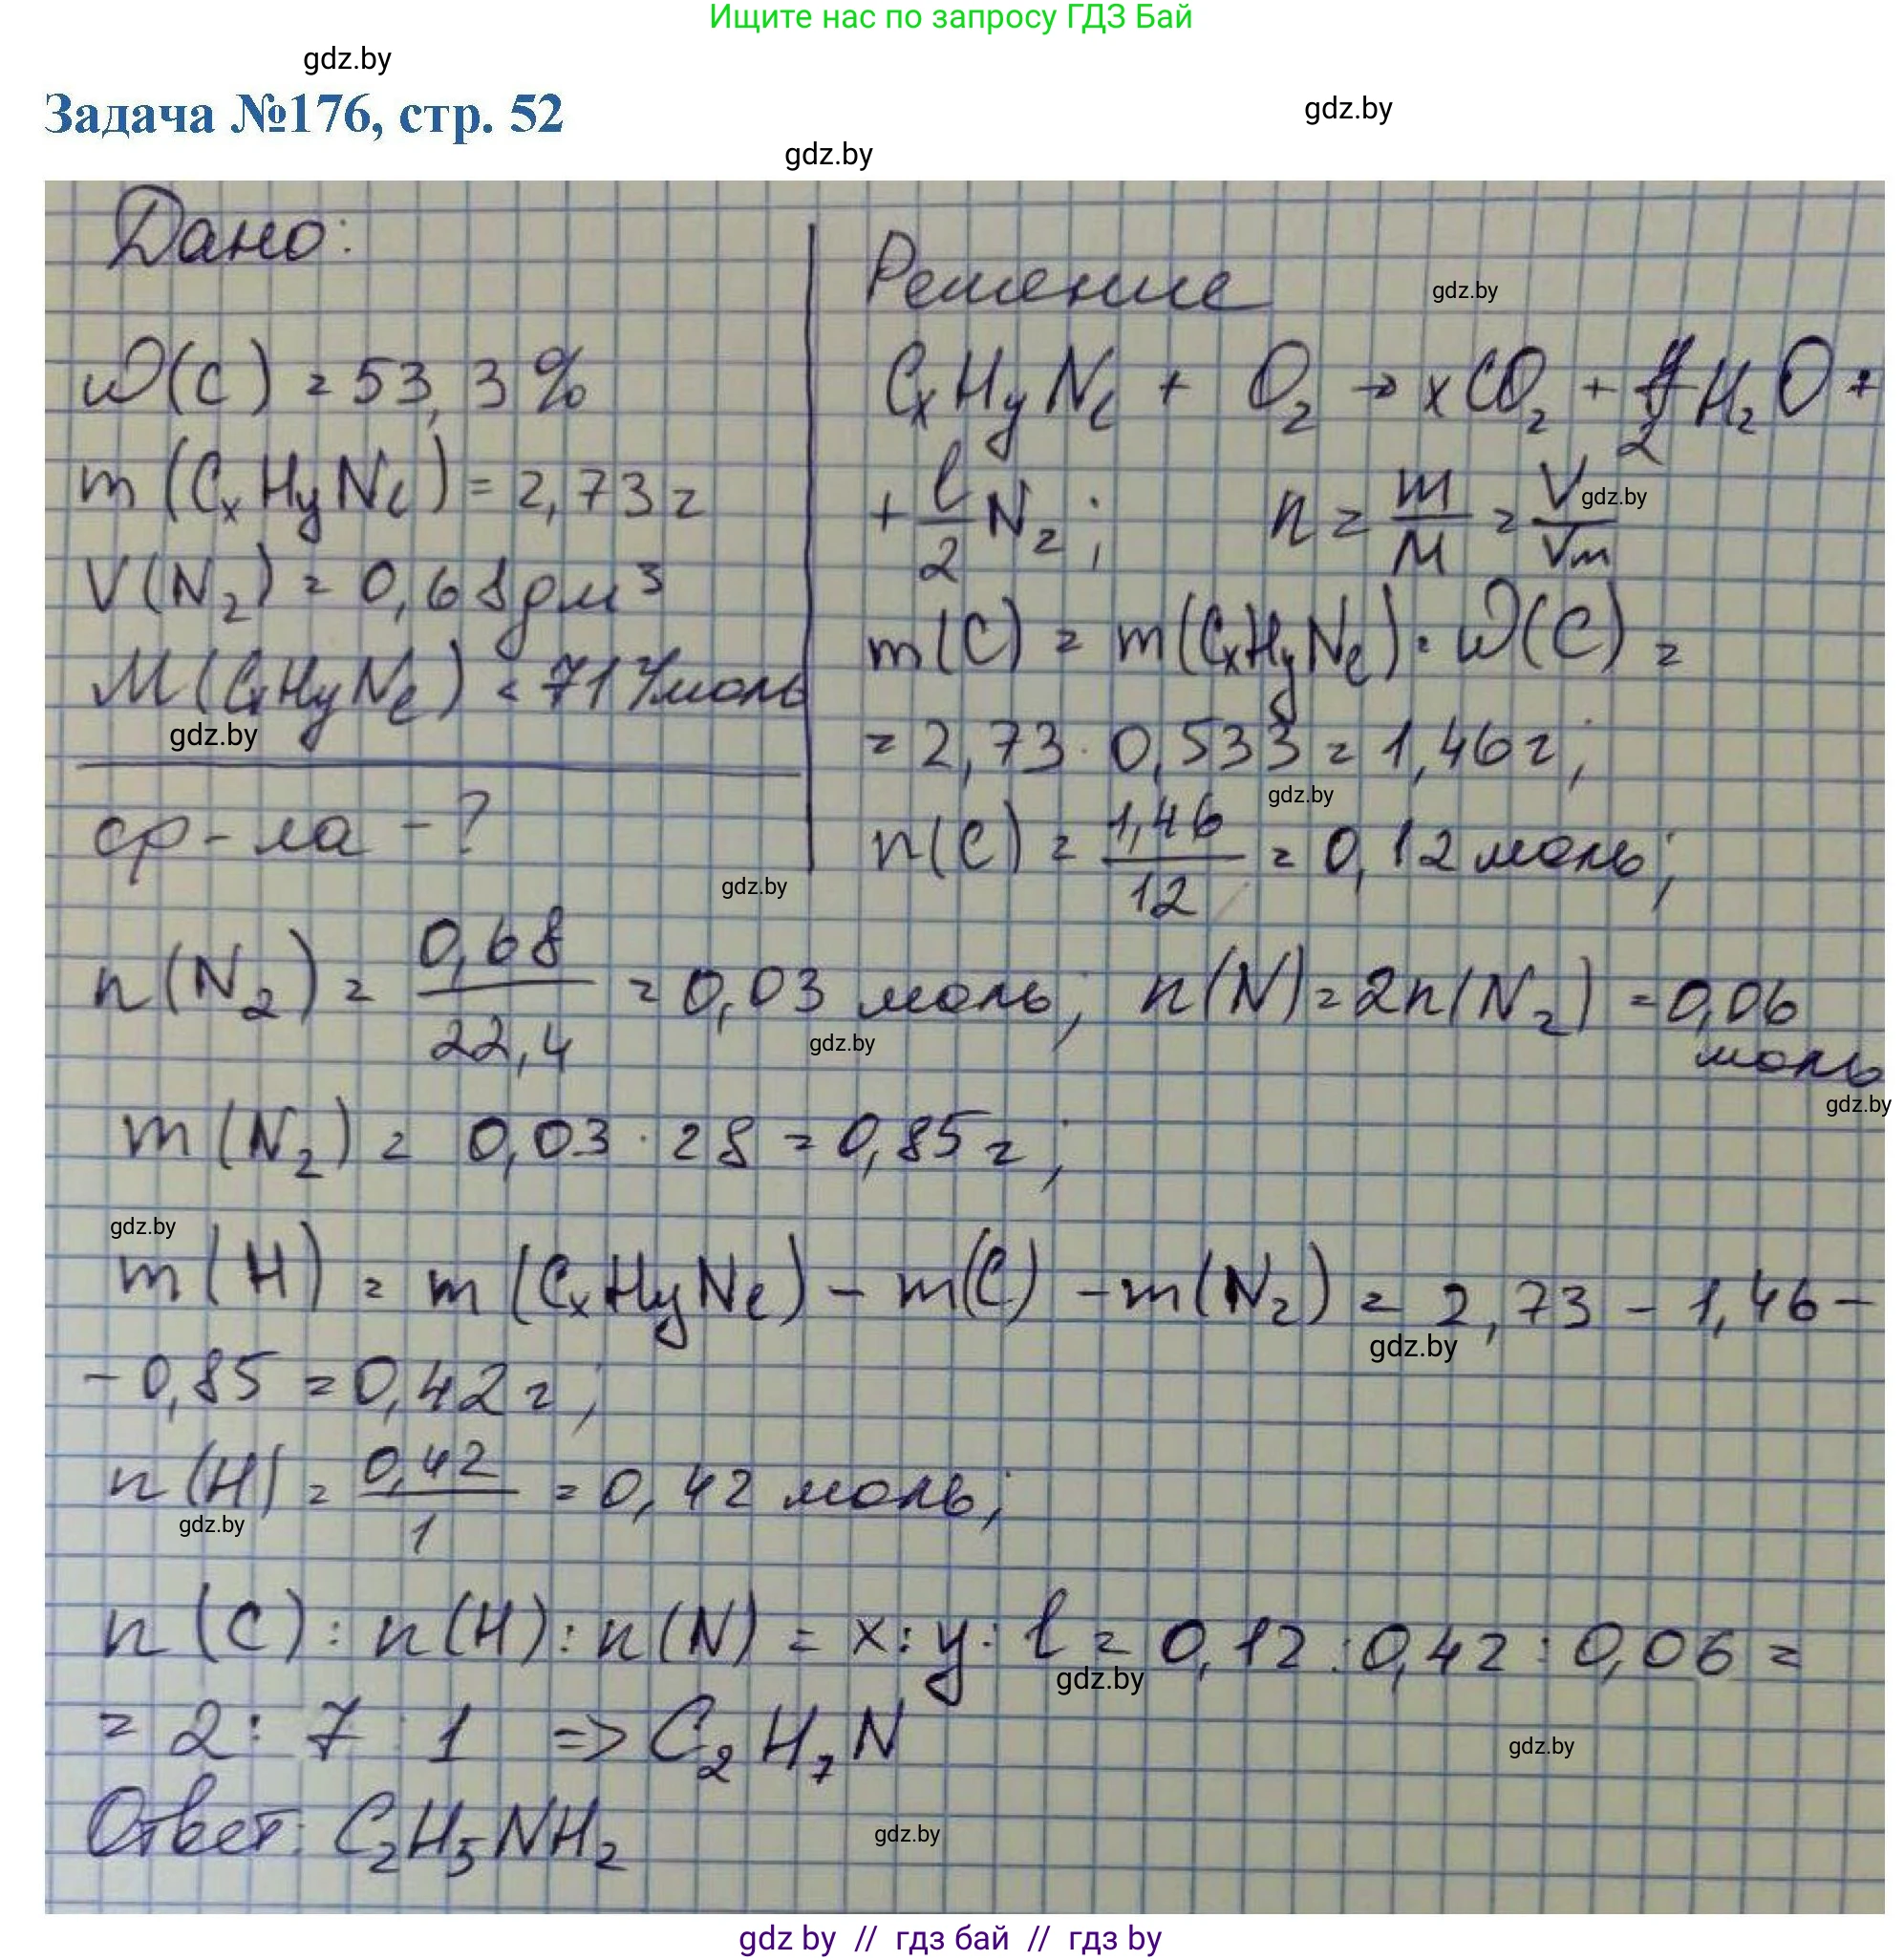 Ищите нас по запросу ГДЗ Бай
gdz.by
Задача №176, стр. 52
gdz.by
gdz.by
Дано:
ω(C) = 53,3 %
m(CxHyNl) = 2,73 г
V(N2) = 0,68 дм³
M(CxHyNl) < 71 г/моль
gdz.by
ф-ла - ?
Решение
gdz.by
CxHyNl + O2 → xCO2 + y/2 H2O +
+ l/2 N2; n = m/M = V/Vm
gdz.by
m(C) = m(CxHyNl) · ω(C) =
= 2,73 · 0,533 = 1,46 г;
gdz.by
n(C) = 1,46/12 = 0,12 моль;
gdz.by
n(N2) = 0,68/22,4 = 0,03 моль; n(N) = 2n(N2) = 0,06
моль
gdz.by
gdz.by
m(N2) = 0,03 · 28 = 0,85 г;
gdz.by
m(H) = m(CxHyNl) - m(C) - m(N2) = 2,73 - 1,46 -
gdz.by
- 0,85 = 0,42 г;
n(H) = 0,42/1 = 0,42 моль;
gdz.by
n(C) : n(H) : n(N) = x : y : l = 0,12 : 0,42 : 0,06 =
gdz.by
= 2 : 7 : 1 => C2H7N
gdz.by
Ответ: C2H5NH2
gdz.by
gdz by // гдз бай // гдз by